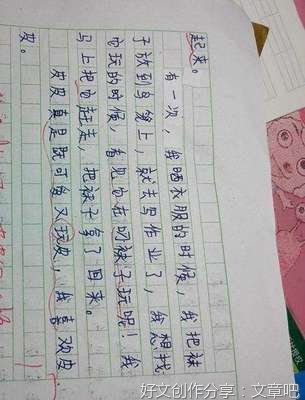 起来。
有一次，我晒衣服的时候，我把袜
子放到鸟笼上，就去写作业了，我想找
它玩的时候，看见它在叨袜子玩呢！我
马上把它赶走，把袜子拿了回来。
皮皮真是既可爱又玩皮，我喜欢皮
皮。
好文创作分享：文章吧